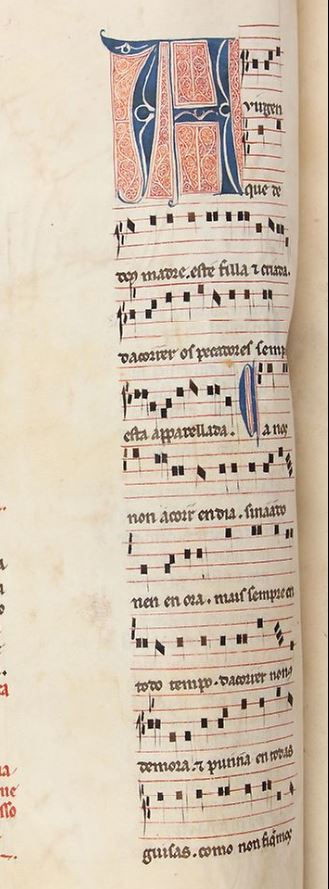 A
virgen
que de
deus madre. este filla ⁊ criada.
dacorrer os pecadores semp
esta apparellada. Ca nos
non acorr en dia. sinaado
nen en ora. mais sempre en
todo tempo. dacorrer nonos
demora. ⁊ punna en todas
guisas. como non fiquemos